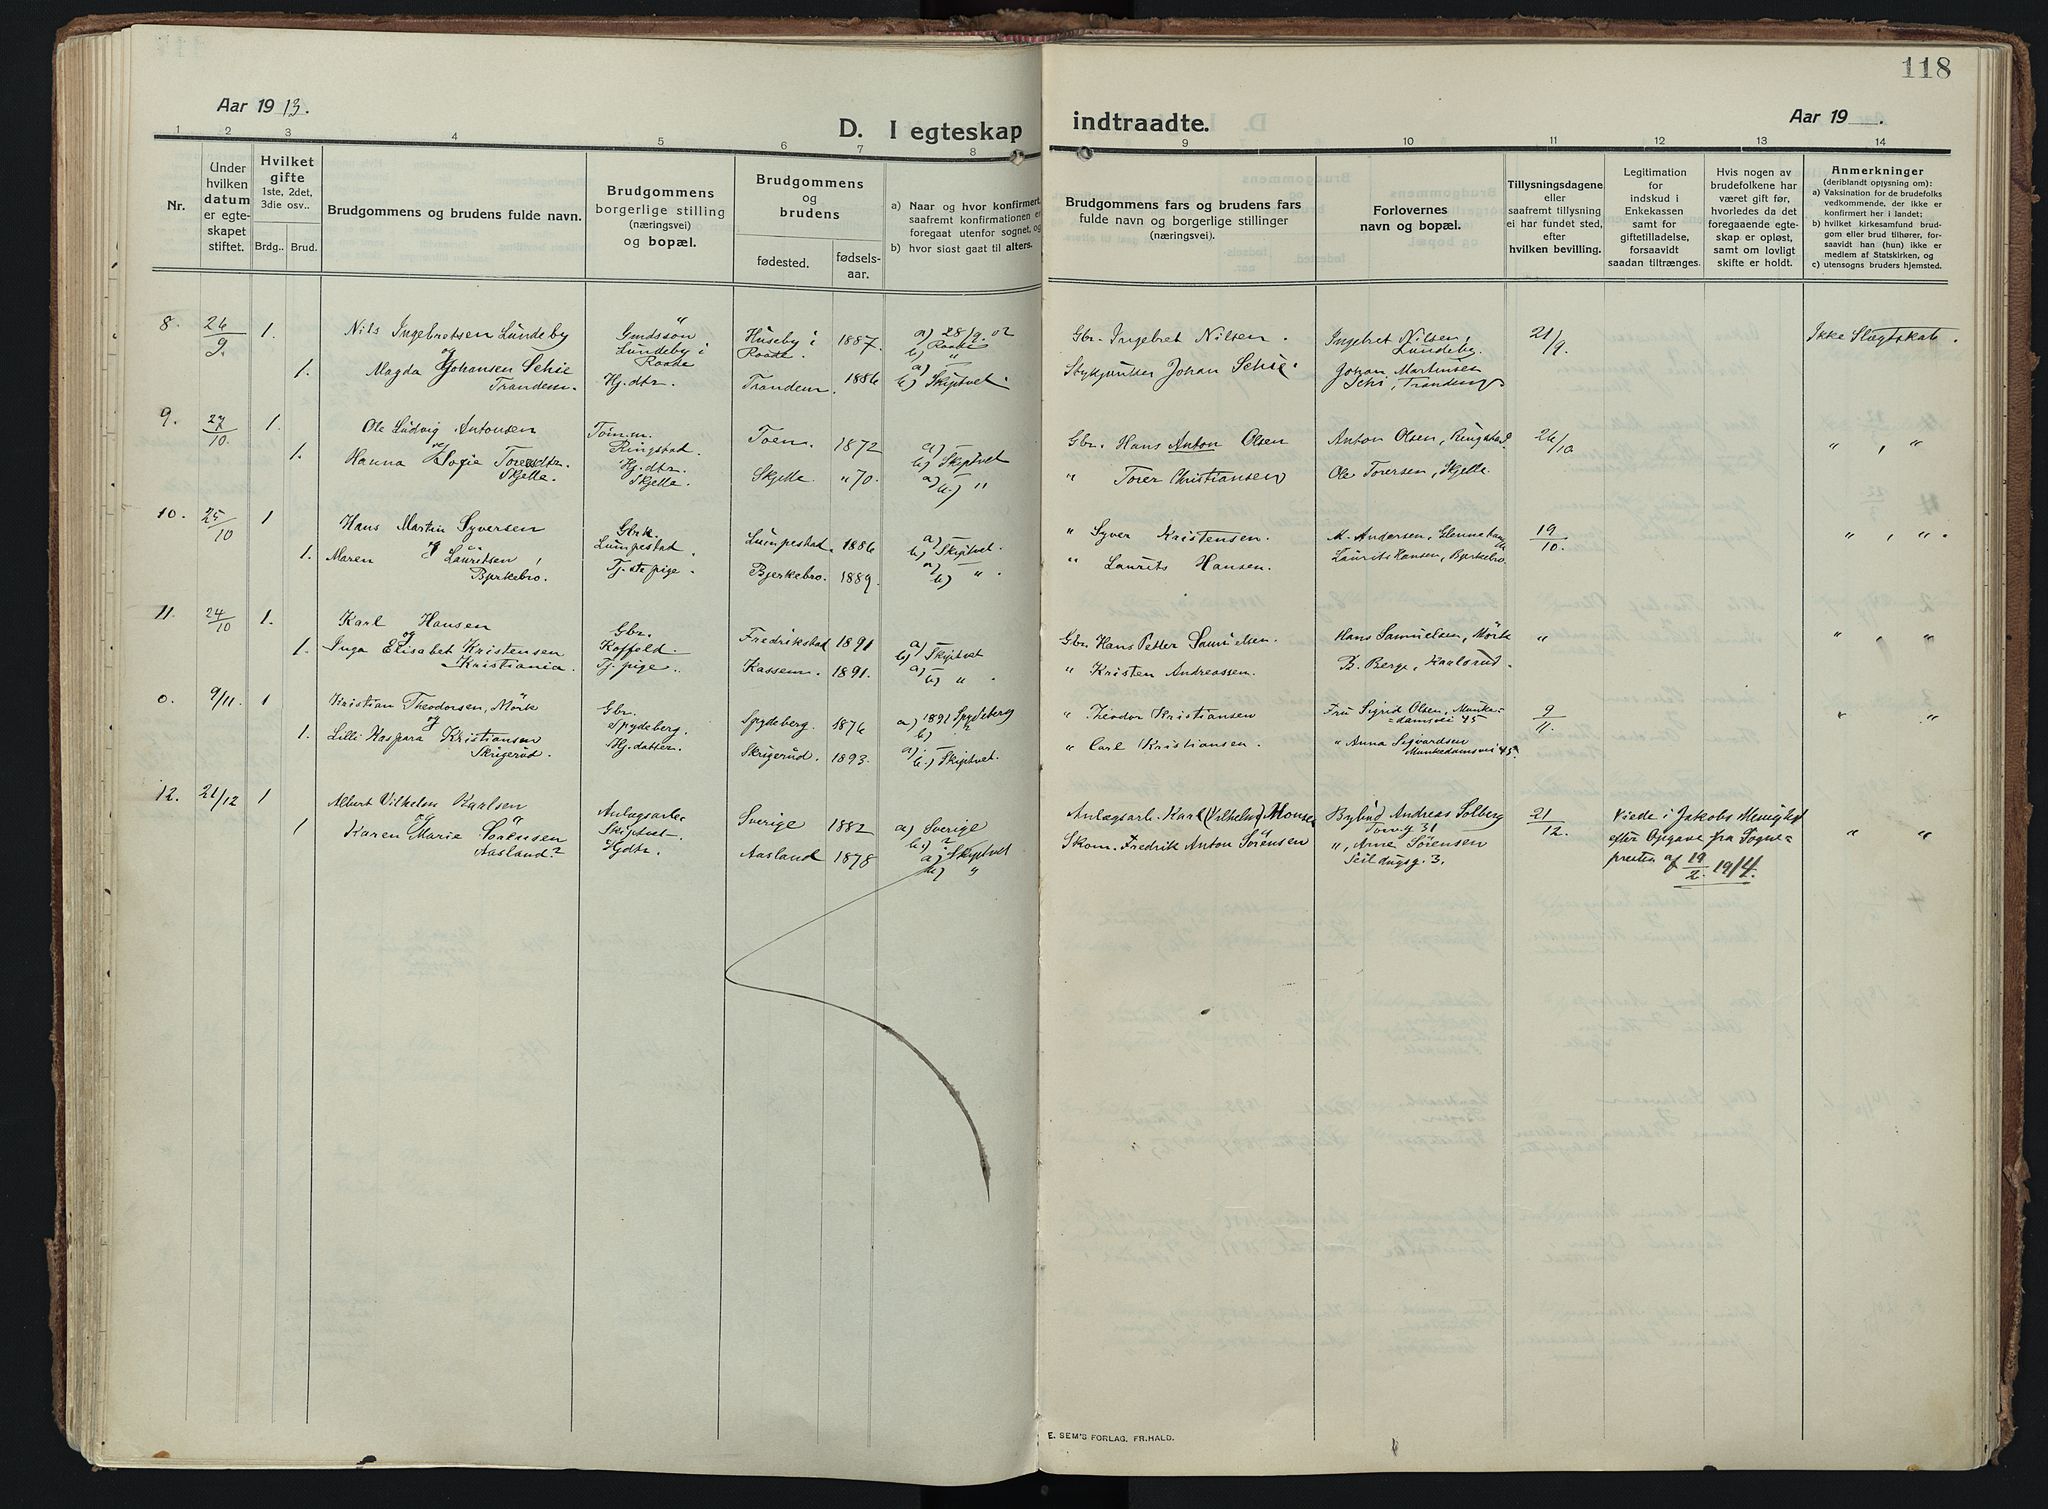 118
Aar 1913.
D. I egteskap
indtraadte.
Aar 19 .
1 2 3 4 5 6 7 8 9 10 11 12 13 14
Nr.
Under
hvilken
datum
er egte-
skapet
stiftet.
Hvilket
gifte
1ste, 2det,
3die osv..
Brdg.. Brud.
Brudgommens og brudens fulde navn.
Brudgommens
borgerlige stilling
(næringsvei)
og bopæl.
Brudgommens
og
brudens
fødested.
fødsels-
aar.
a) Naar og hvor konfirmert,
saafremt konfirmationen er
foregaat utenfor sognet, og
b) hvor sidst gaat til alters.
Brudgommens fars og brudens fars
fulde navn og borgerlige stillinger
(næringsvei).
Forlovernes
navn og bopæl.
Tillysningsdagene
eller
saafremt tillysning
ei har fundet sted,
efter
hvilken bevilling.
Legitimation
for
indskud i
Enkekassen
samt for
giftetilladelse,
forsaavidt
saadan tiltrænges.
Hvis nogen av
brudefolkene har
været gift før,
hvorledes da det
foregaaende egte-
skap er opløst,
samt om lovligt
skifte er holdt.
Anmerkninger
(deriblandt opjysning om):
a) Vaksination for de brudefolks
vedkommende, der ikke er
konfirmert her i landet;
b) hvilket kirkesamfund brud-
gom eller brud tilhører, for-
saavidt han (hun) ikke er
medlem af Statskirken, og
c) utensogns bruders hjemsted.
8. 26/9. 1. Nils Ingebretsen Lundeby Gmdssøn Huseby i 1887. a) 28/9. 02 Gbr. Ingebret Nilsen. Ingebret Nilsen, 21/9. Ikke Slegtskab.
og Lundeby i Raade. b) Raade " Lundeby.
Raade
1. Magda Johansen Schie Hj.dtr. Trandem. 1886 a) b) Skiptvet. Johan Schie. Johan Martinsen
Trandem. Schi, Trandem
9. 27/10. 1. Ole Ludvig Antonsen Tøm.m. Toen. 1872 a) Gbr. Hans Anton Olsen Anton Olsen, Ringstad 26/10 " , "
og Ringstad. b) Skiptvet
1. Hanna Sofie Toresdtr. Hj.dtr. Skjelle. "70. a) b) " " Torer Christiansen Ole Toresen, Skjelle.
Skjelle. Skjelle.
10. 25/10 1 Hans Martin Syversen Gbrk. Lumpestad. 1886 a) " Syver Kristensen. M. Andersen, 19/10. " , " .
og Lumpestad. b) Skiptvet.
1. Maren Lauritsen, Tj.ste pige. Bjerkebro. 1889. a) b) " " Laurits Hansen. Laurits Hansen, Bjerkebro.
Bjerkebro.
11. 24/10 1. Karl Hansen Gbr. Fredrikstad 1891 a) Gbr. Hans Petter Samuelsen. Hans Samuelsen, Mörk " " , "
og Koffeld. b) Skiptvet
1. Inga Elisabet Kristensen Tj. pige. Kassem. 1891. a) b) " . " Kristen Andreassen. B. Berge, Karlsrud.
Kristiania.
0. 9/11. 1 Kristian Theodorsen, Mörk Gbr. Spydeberg. 1876 a) 1892 Spydeberg " Theodor Kristiansen Fru Sigrid Olsen, Munke- 9/11. " "
og Spydeberg. b) damsvei 45
1. Lilli Kaspara Kristiansen Hj.datter. Skrigerud. 1893. a) b) Skiptvet. " Carl Kristiansen. " Anna Sigvardsen
Skrigerud. Munkedamsvei 45
12. 21/12 1 Albert Vilhelm Karlsen Anlægsarb. Sverige 1882 a) Sverige Anlægsarb. Karl (Vilhelm) Monsen Andreas Solberg 21/12. Viede i Jakobs Menighet " "
og Skiptvet. b) ? Torvg 31 efter Opgave fra Sogne-
1 Karen Marie Sörensen Hjdtr. Aasland 1878 a) Skiptvet Skom. Fredrik Anton Sörensen ", Arne Sörensen presten af 19/2. 1914.
Aasland? b) " Seildugsg. 3.
E. SEM'S FORLAG. FR.HALD.